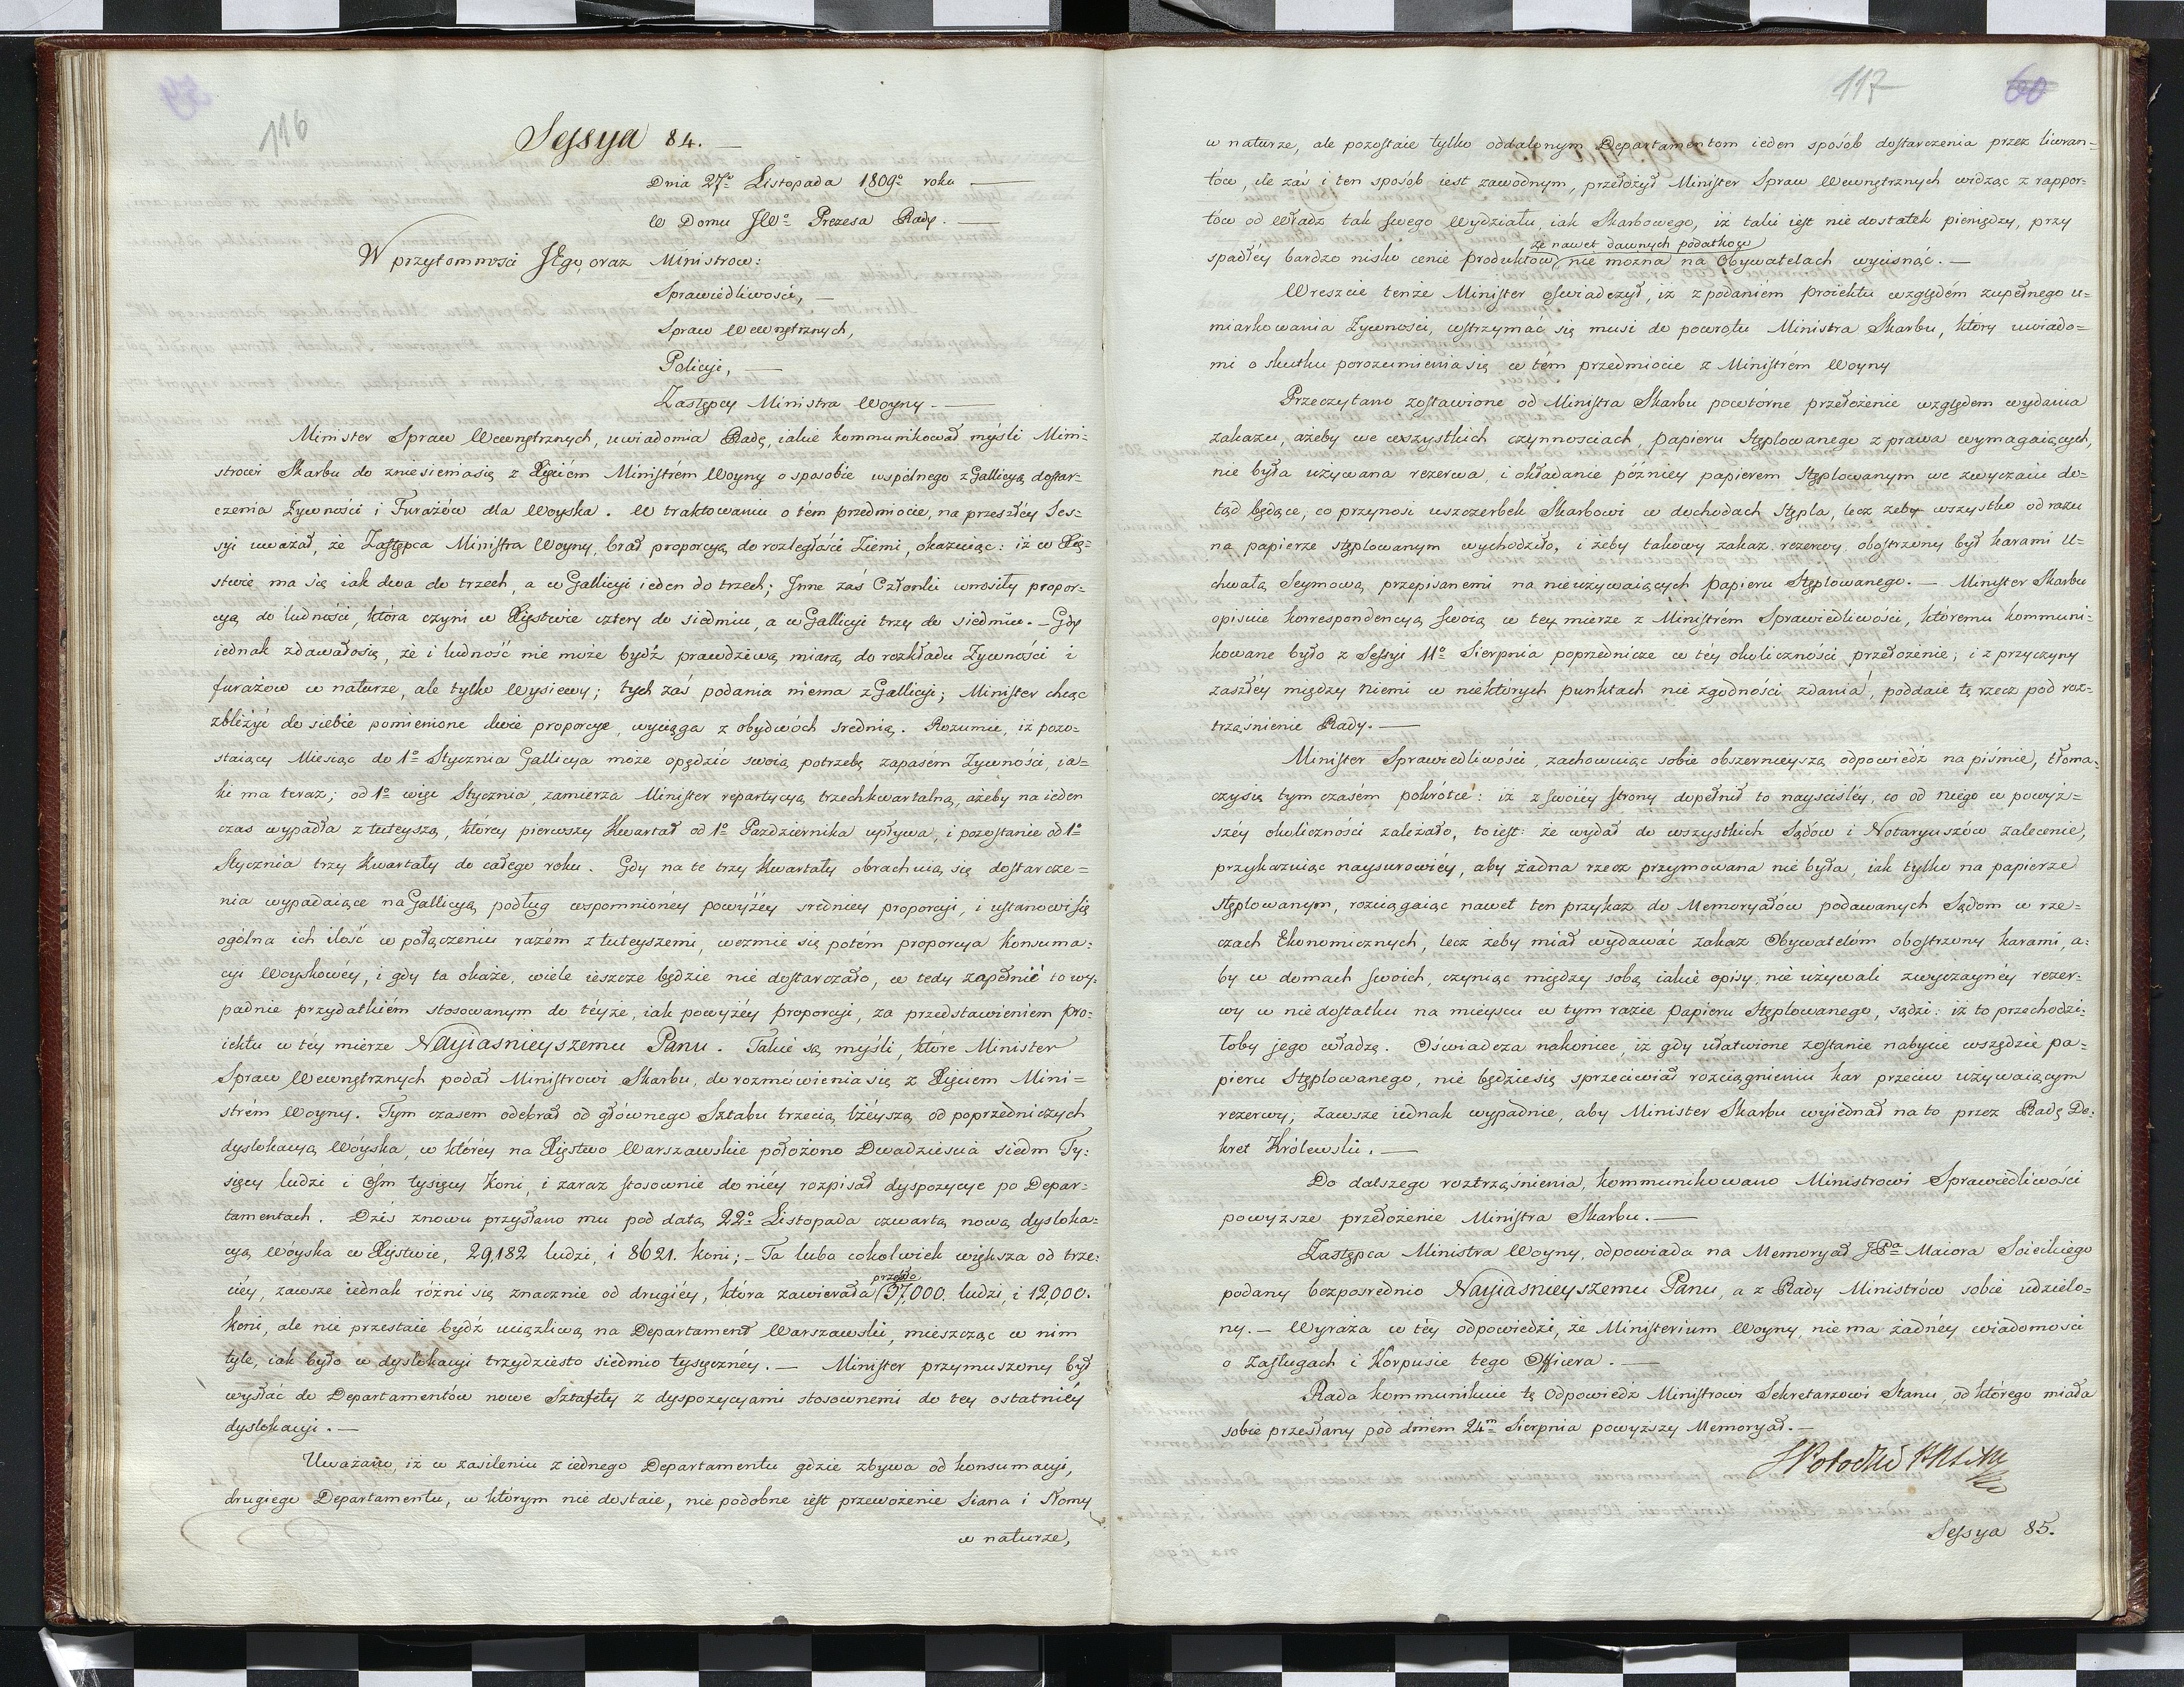 59
116
Sessya 84. —
Dnia 27º Listopada 1809º roku —
W Domu JWº Prezesa Rady. —
W przytomności JEgo, oraz Ministrow:
Sprawiedliwości, —
Spraw Wewnętrznych,
Policyi, —
Zastępcy Ministra Woyny. —
Minister Spraw Wewnętrznych, uwiadomia Radę, iakie kommunikował myśli Mini=
strowi Skarbu do zniesieniasię z Xięciém Ministrém Woyny o sposobie wspólnego z Gallicyą dostar=
czenia Żywności i Furażów dla Woyska. W traktowaniu o tém przedmiocie, na przeszłéy Ses=
syi uważał, że Zastępca Ministra Woyny, brał proporcyą do rozległości Ziemi, okazuiąc: iż w Xię=
stwie ma się iak dwa do trzech, a w Gallicyi ieden do trzech; Inne zaś Członki wnosiły propor=
cyą do ludności, która czyni w Xięstwie cztery do siedmiu, a w Gallicyi trzy do siedmiu. — Gdy
iednak zdawałosię, że i ludność nie może bydź prawdziwą miarą do rozkładu Żywności i
furażow w naturze, ale tylko Wysiewy; tych zaś podania niema z Gallicyi; Minister chcąc
zbliżyć do siebie pomienione dwie proporcye, wyciąga z obydwóch srednią. Rozumie, iż pozo=
staiący Miesiąc do 1º Stycznia Gallicya może opędzić swoią potrzebę zapasém Żywności, ia=
ki ma teraz; od 1º więc Stycznia, zamierza Minister repartycyą trzechkwartalną, ażeby na ieden
czas wypadła z tuteyszą, którey pierwszy Kwartał od 1º Pazdziernika upływa, i pozostanie od 1º
Stycznia trzy Kwartały do całego roku. Gdy na te trzy Kwartały obrachuią się dostarcze=
nia wypadaiące na Gallicyą podług wspomnionéy powyżéy sredniey proporcyi, i ustanowi się
ogólna ich ilość w połączeniu razém z tuteyszemi, wezmie się potém proporcya Konsuma=
cyi Woyskowéy, i gdy ta okaże, wiele ieszcze będzie nie dostarczało, w tedy zapełnić to wy=
padnie przydatkiém stosowanym do téyże, iak powyżéy proporcyi, za przedstawieniem pro=
iektu w téy mierze Nayiasnieyszemu Panu. Takie są myśli, które Minister
Spraw Wewnętrznych podał Ministrowi Skarbu, do rozmówienia się z Xięciem Mini=
strém Woyny. Tym czasem odebrał od głównego Sztabu trzecią lżéyszą od poprzedniczych
dyslokacyą Wóyska, w któréy na Xięstwo Warszawskie położono Dwadzieścia siedm Ty=
sięcy ludzi i Ośm tysięcy Koni, i zaraz stosownie do niéy rozpisał dyspozycye po Depar=
tamentach. Dziś znowu przysłano mu pod datą 22º Listopada czwartą nową dysloka=
cyą Wóyska w Xięstwie, 29,182 ludzi, i 8621. koni; — Ta luba cokolwiek większa od trze=
ciéy, zawsze iednak różni się znacznie od drugiéy, która zawierała przeszło 37,000. ludzi, i 12,000.
koni, ale nie przestaie bydź uciążliwą na Departament Warszawski, mieszcząc w nim
tyle, iak było w dyslokacyi trzydziesto siedmio tysięcznéy. — Minister przymuszony był
wysłać do Departamentów nowe Sztafety z dyspozycyami stosownemi do tey ostatniéy
dyslokacyi. —
Uważano, iż w zasileniu z iednego Departamentu gdzie zbywa od konsumacyi,
drugiego Departamentu, w którym nie dostaie, nie podobne iest przewożenie Siana i Słomy
w naturze,
117
60
w naturze, ale pozostaie tylko oddalonym Departamentom ieden sposób dostarczenia przez liweran=
tów, ile zaś i ten sposób iest zawodnym, przełożył Minister Spraw Wewnętrznych widząc z rappor=
tów od Władz tak swego Wydziału, iak Skarbowego, iż taki iest nie dostatek pieniędzy, przy
spadłéy bardzo nisko cenie produktów, że nawet dawnych podatkow nie można na Obywatelach wycisnąć. —
Wreszcie tenże Minister oświadczył, iż z podaniém proiektu względém zupełnego u=
miarkowania Żywności, wstrzymać się musi do powrotu Ministra Skarbu, który uwiado=
mi o skutku porozumienia się w tém przedmiocie z Ministrém Woyny
Przeczytano zostawione od Ministra Skarbu powtórne przełożenie względem wydania
zakazu, ażeby we wszystkich czynnościach, papieru Stęplowanego z prawa wymagaiących,
nie była używana rezerwa, i okładanie późniey papierem Stęplowanym we zwyczaiu do=
tąd będące, co przynosi uszczerbek Skarbowi w dochodach Stępla, lecz żeby wszystko od razu
na papierze stęplowanym wychodziło, i żeby takowy zakaz rezerwy, obostrzony był karami U=
chwałą Seymową przepisanemi na nieużywaiących Papieru Stęplowanego. — Minister Skarbu
opisuie korrespondencyą swoią w tey mierze z Ministrém Sprawiedliwości, któremu kommuni=
kowane było z Sessyi 11º Sierpnia poprzednicze w téy okoliczności przełożenie; i z przyczyny
zaszłéy między niemi w niektorych punktach nie zgodności zdania, poddaie tę rzecz pod roz=
trząśnienie Rady. —
Minister Sprawiedliwości, zachowuiąc sobie obszernieyszą odpowiedź na piśmie, tłoma=
czysię tym czasém pokrótce: iż z swoiéy strony dopełnił to nayściśléy, co od niego w powyż=
széy okoliczności zależało, toiest: że wydał do wszystkich Sądów i Notaryuszów zalecenie,
przykazuiąc naysurowiéy, aby żadna rzecz przymowana nie była, iak tylko na papierze
stęplowanym, rozciągaiąc nawet ten przykaz do Memoryałów podawanych Sądom w rze=
czach Ekonomicznych, lecz żeby miał wydawać zakaz Obywatelóm obostrzony karami, a=
by w domach swoich, czyniąc między sobą iakie opisy, nie używali zwyczaynéy rezer=
wy w nie dostatku na mieyscu w tym razie Papieru Stęplowanego, sądzi: iż to przechodzi=
łoby jego władzę. Oświadcza nakoniec, iż gdy ułatwione zostanie nabycie wszędzie pa=
pieru Stęplowanego, nie będziesię sprzeciwiał rozciągnieniu kar przeciw używaiącym
rezerwy; zawsze iednak wypadnie, aby Minister Skarbu wyiednał na to przez Radę De=
kret Królewski. —
Do dalszego roztrząśnienia, kommunikowano Ministrowi Sprawiedliwości
powyższe przełożenie Ministra Skarbu. —
Zastępca Ministra Woyny, odpowiada na Memoryał JPª Maiora Scieckiego
podany bezpośrednio Nayiasnieyszemu Panu, a z Rady Ministrów sobie udzielo=
ny. — Wyraża w téy odpowiedzi, że Ministerium Woyny, nie ma żadnéy wiadomości
o zasługach i Korpusie tego Officera. —
Rada kommunikuie tę Odpowiedź Ministrowi Sekretarzowi Stanu, od którego miała
sobie przesłany pod dniem 24m Sierpnia powyższy Memoryał. —
SPotocki
Sessya 85.